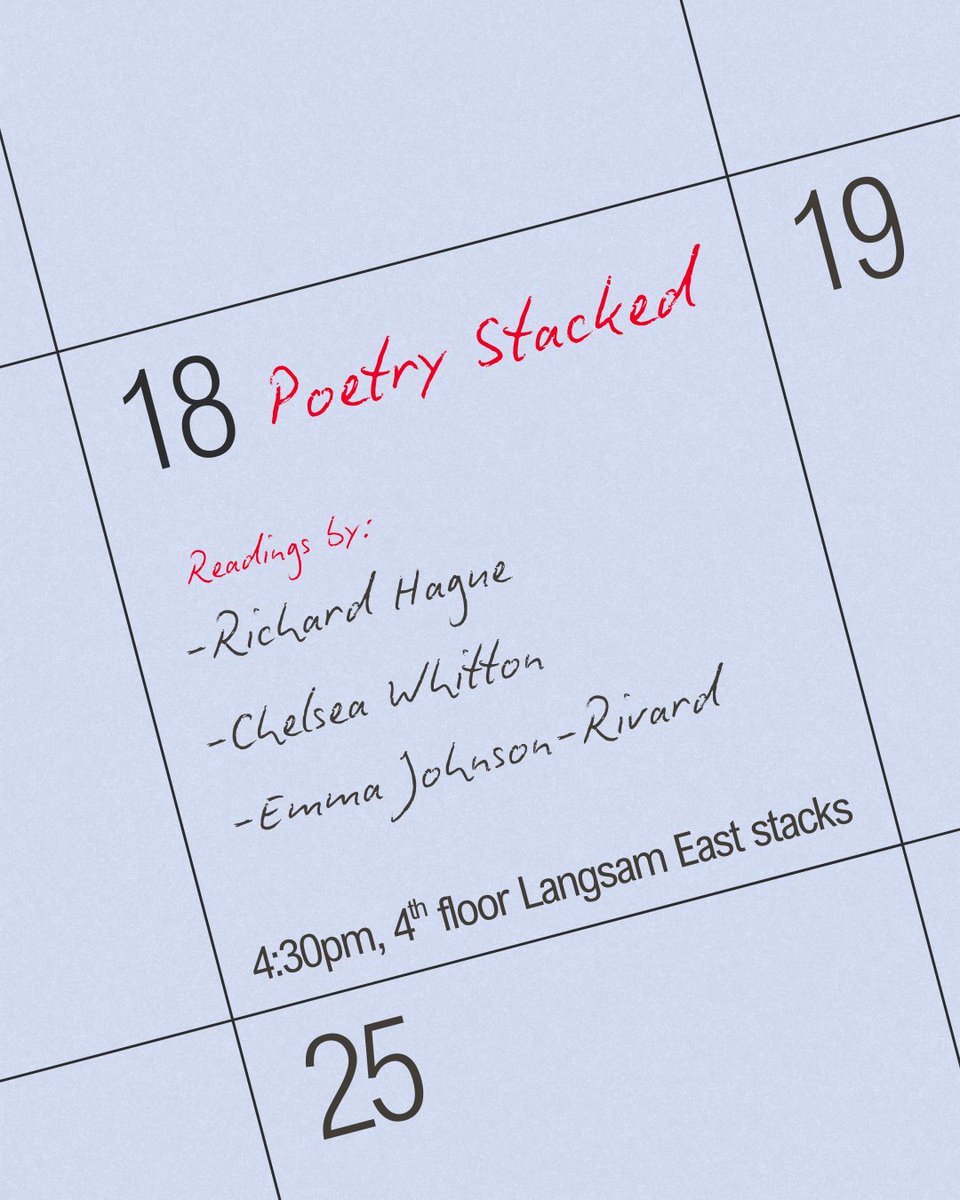 18 Poetry Stacked
19
Readings by:
-Richard Hague
-Chelsea Whitton
-Emma Johnson-Rivard
4:30pm, 4th floor Langsam East stacks
25